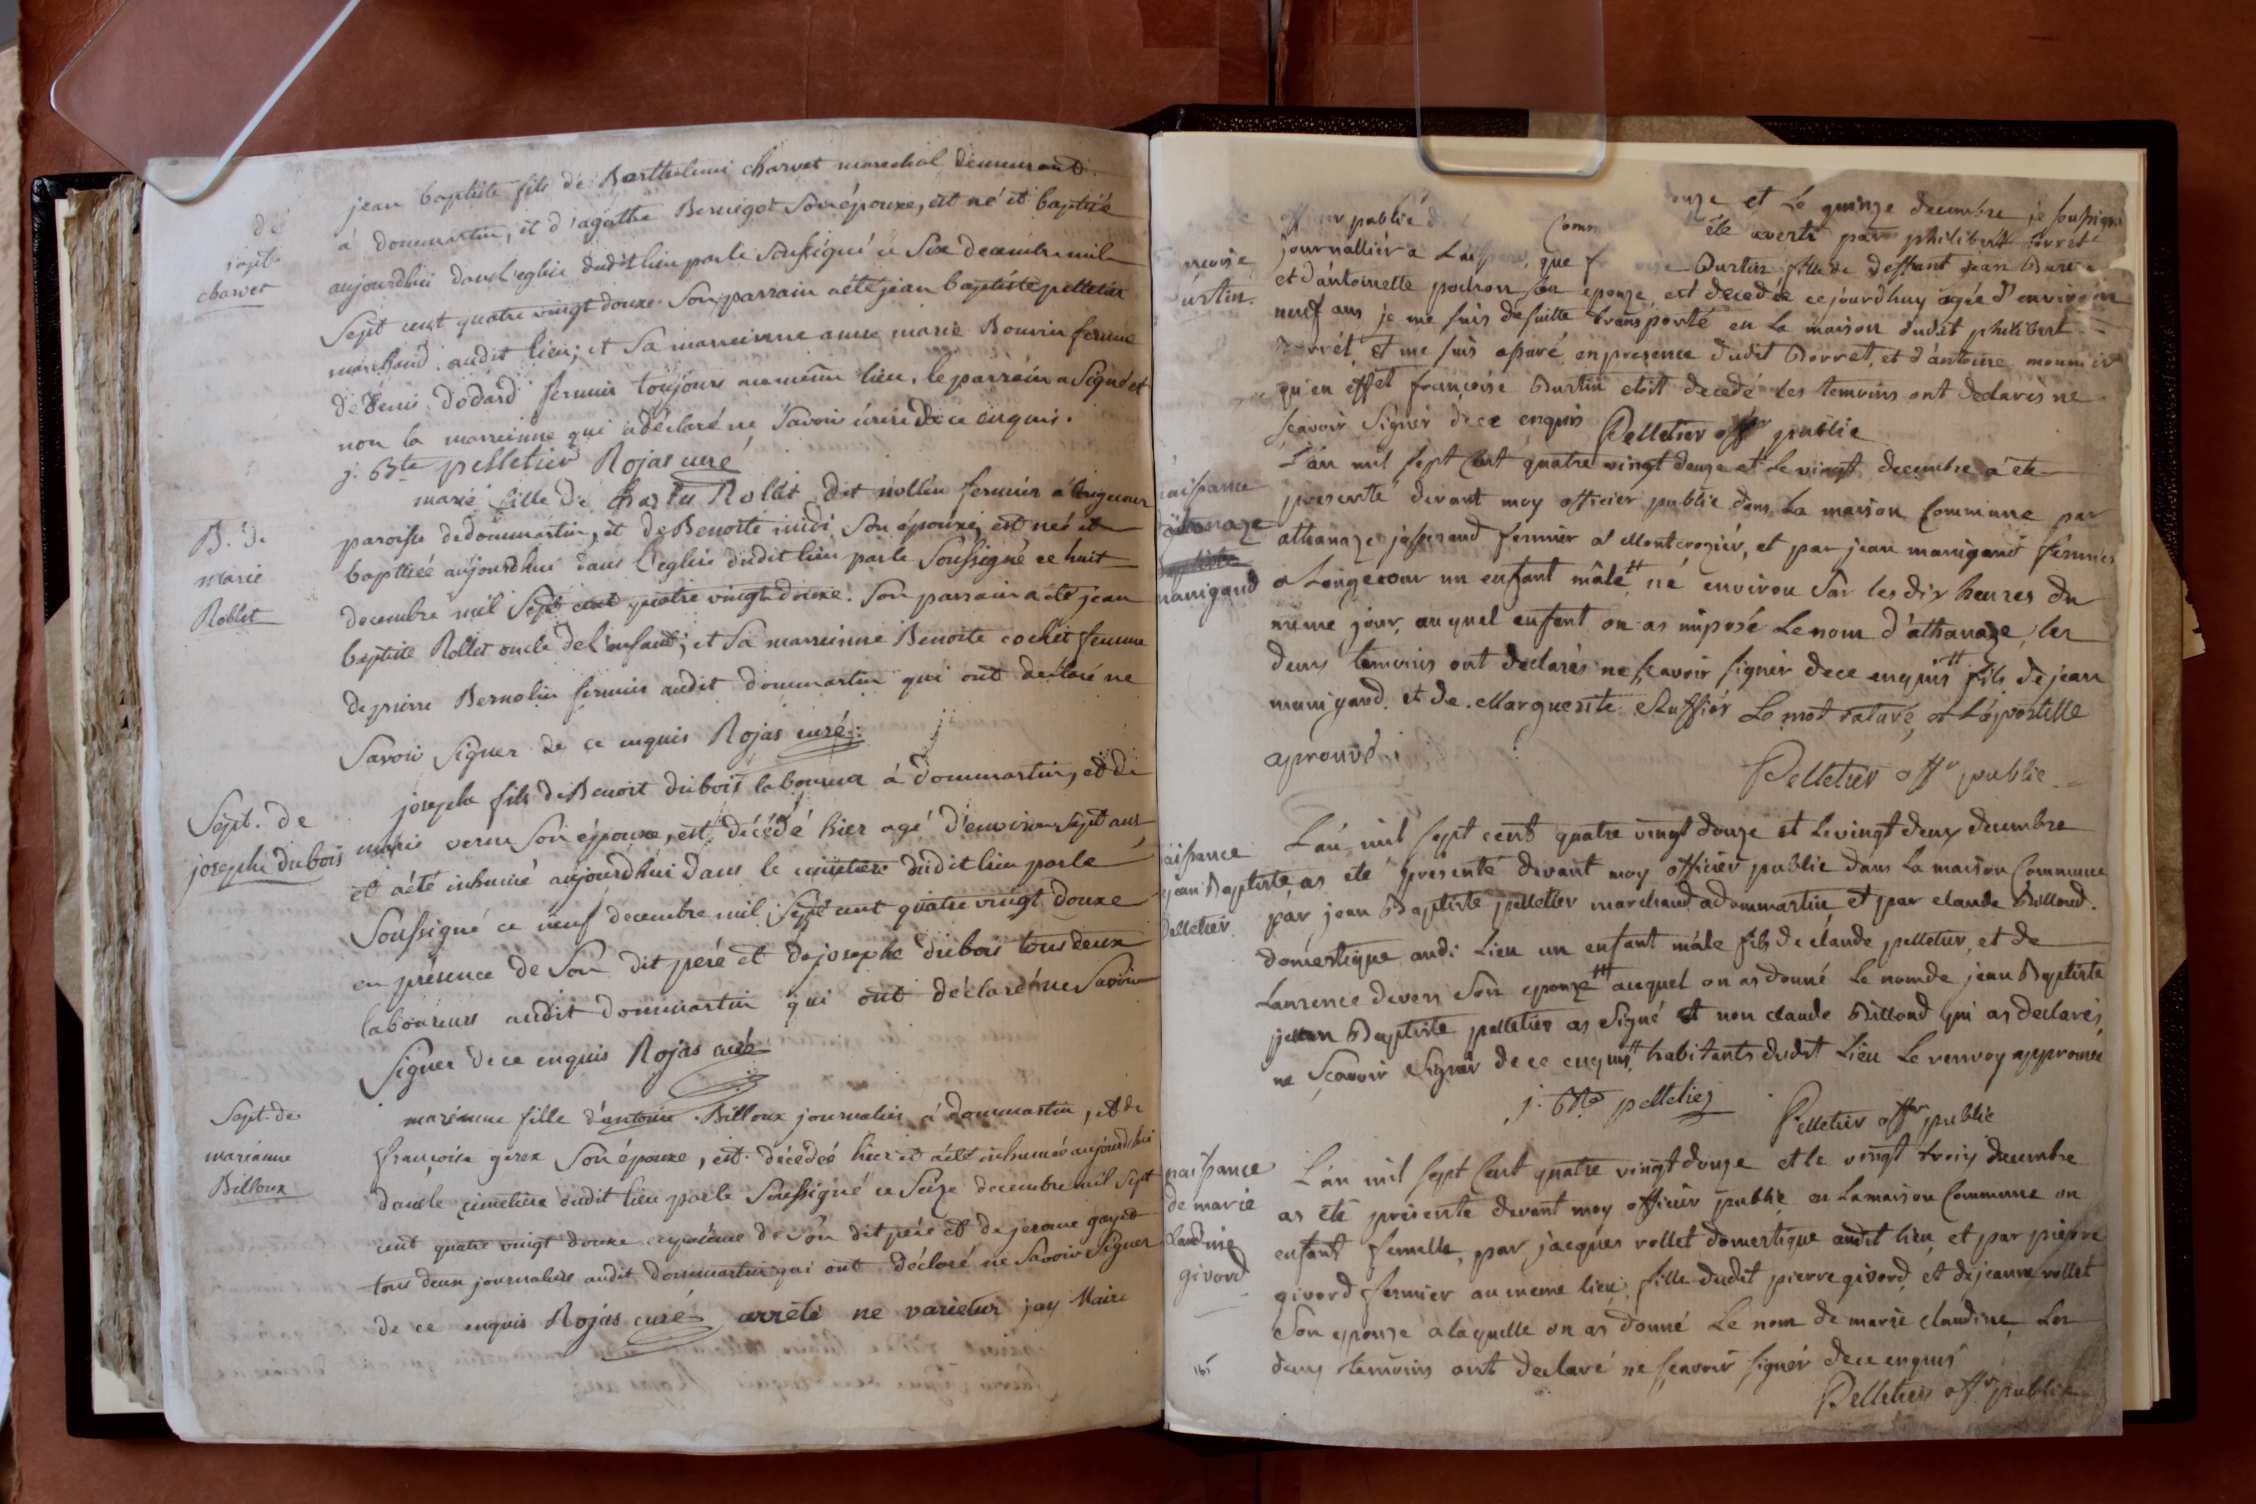 de
jean baptiste fils de Barthelemi charvet marechal demeurant
à dommartin, et d'agathe Bernigot son épouse, est né et baptisé
japt.
charvet
aujourdhui dans l'eglise dudit lieu par le soussigné ce six decembre mil
sept cent quatre vingt douxe. son parrain a été jean baptiste pelletier
marchand audit lieu; et sa marreinne a ure marie Bouvin femme
de denis dodard fermier toujours au même lieu, le parrain a signé et
non la marreinne qui a déclaré ne savoir écrire de ce enquis.
j. Bte pelletier Rojas curé
B. de
marie
Rollet
marie fille de Rollet dit nollin fermier à longecour
paroisse de dommartin, et de Benoite midi son épouse, est née et
baptisée aujourdhui dans l'eglise dudit lieu par le soussigné ce huit
decembre mil sept cent quatre vingt douxe. son parrain a été jean
baptiste Rollet oncle de l'enfant; et sa marreinne Benoite cochet femme
de pierre Bernolin fermier audit dommartin qui ont déclaré ne
savoir signer de ce enquis Rojas curé.
Sept. de
josephe dubois
josephe fils de Benoit dubois laboureur à dommartin, et de
marie verne son épouse, est décédé hier agé d'environ sept ans
et a été inhumé aujourdhui dans le cimetiere dudit lieu par le
soussigné ce neuf decembre mil sept cent quatre vingt douxe
en présence de son dit père et de josephe dubois tous deux
laboureurs audit dommartin qui ont déclaré ne savoir
signer de ce enquis Rojas curé
Sept. de
marianne
Billoux
marianne fille d'antoine Billoux journalier à dommartin, et de
françoise gerex son épouse, est décédée hier et a été inhumée aujourdhui
dans le cimetiere dudit lieu par le soussigné ce seize decembre mil sept
cent quatre vingt douxe en présence de son dit père et de jerome gayet
tous deux journaliers audit dommartin qui ont déclaré ne savoir signer
de ce enquis Rojas curé arrété ne varietur jay Maire
ouze et Le quinze decembre je soussigné
officier public d Comm été averti par philibert Borret
ncoise
urtin.
journallier a que f oise Burtin fille de deffunt jean Burtin
et d'antoinette pochon son epouze, est decedée ce jourdhuy agée d'environ
neuf ans je me suis desuitte transporté en La maison dudit philibert
Borrét et me suis assuré en presence dudit Borret, et d'antoine mounier
qu'en éffet françoise Burtin etoit decedé les temoins ont declarés ne
scavoir signer de ce enquis Pelletier offer public
naissance
d'athanaze
manigand
L'an mil sept Cent quatre vingt douze et Le vingt decembre a été
presenté devant moy officier public dans La maison Commune par
athanaze jasserand fermier a Montcrozier, et par jean manigand fermier
a Longecour un enfant mâle ‡ né environ sur les dix heures du
même jour, auquel enfant on as imposé Le nom d'athanaze, les
deux temoins ont declarés ne scavoir signer de ce enquis ‡ fils de jean
manigand et de Marguerite Ruffier Le mot raturé, et L'apostille
aprouvé
Pelletier offr public
naissance
jean Baptiste
Pelletier
L'an mil sept cent quatre vingt douze et Le vingt deux decembre
as été presenté devant moy officier public dans La maison Commune
par jean Baptiste pelletier marchand a dommartin et par claude Billoud.
domestique audi Lieu un enfant mâle fils de claude pelletier, et de
Laurence devers son epouze ‡ auquel on as donné Le nom de jean Baptiste
jean Baptiste pelletier as signé et non claude Billoud qui as declarés
ne scavoir signer de ce enquis ‡ habitants dudit Lieu Le renvoy approuvé
j. Bte pelletier
Pelletier offer public
naissance
de marie
Claudine
givord
L'an mil sept Cent quatre vingt douze et le vingt trois decembre
as été presenté devant moy officier public en La maison Commune un
enfant femelle, par jacques rollet domestique audit lieu et par pierre
givord fermier au meme lieu, fille dudit pierre givord, et de jeanne rollet
son epouze a laquelle on as donné Le nom de marie claudine Les
deux temoins ont declaré ne scavoir signér de ce enquis
Pelletier offer public